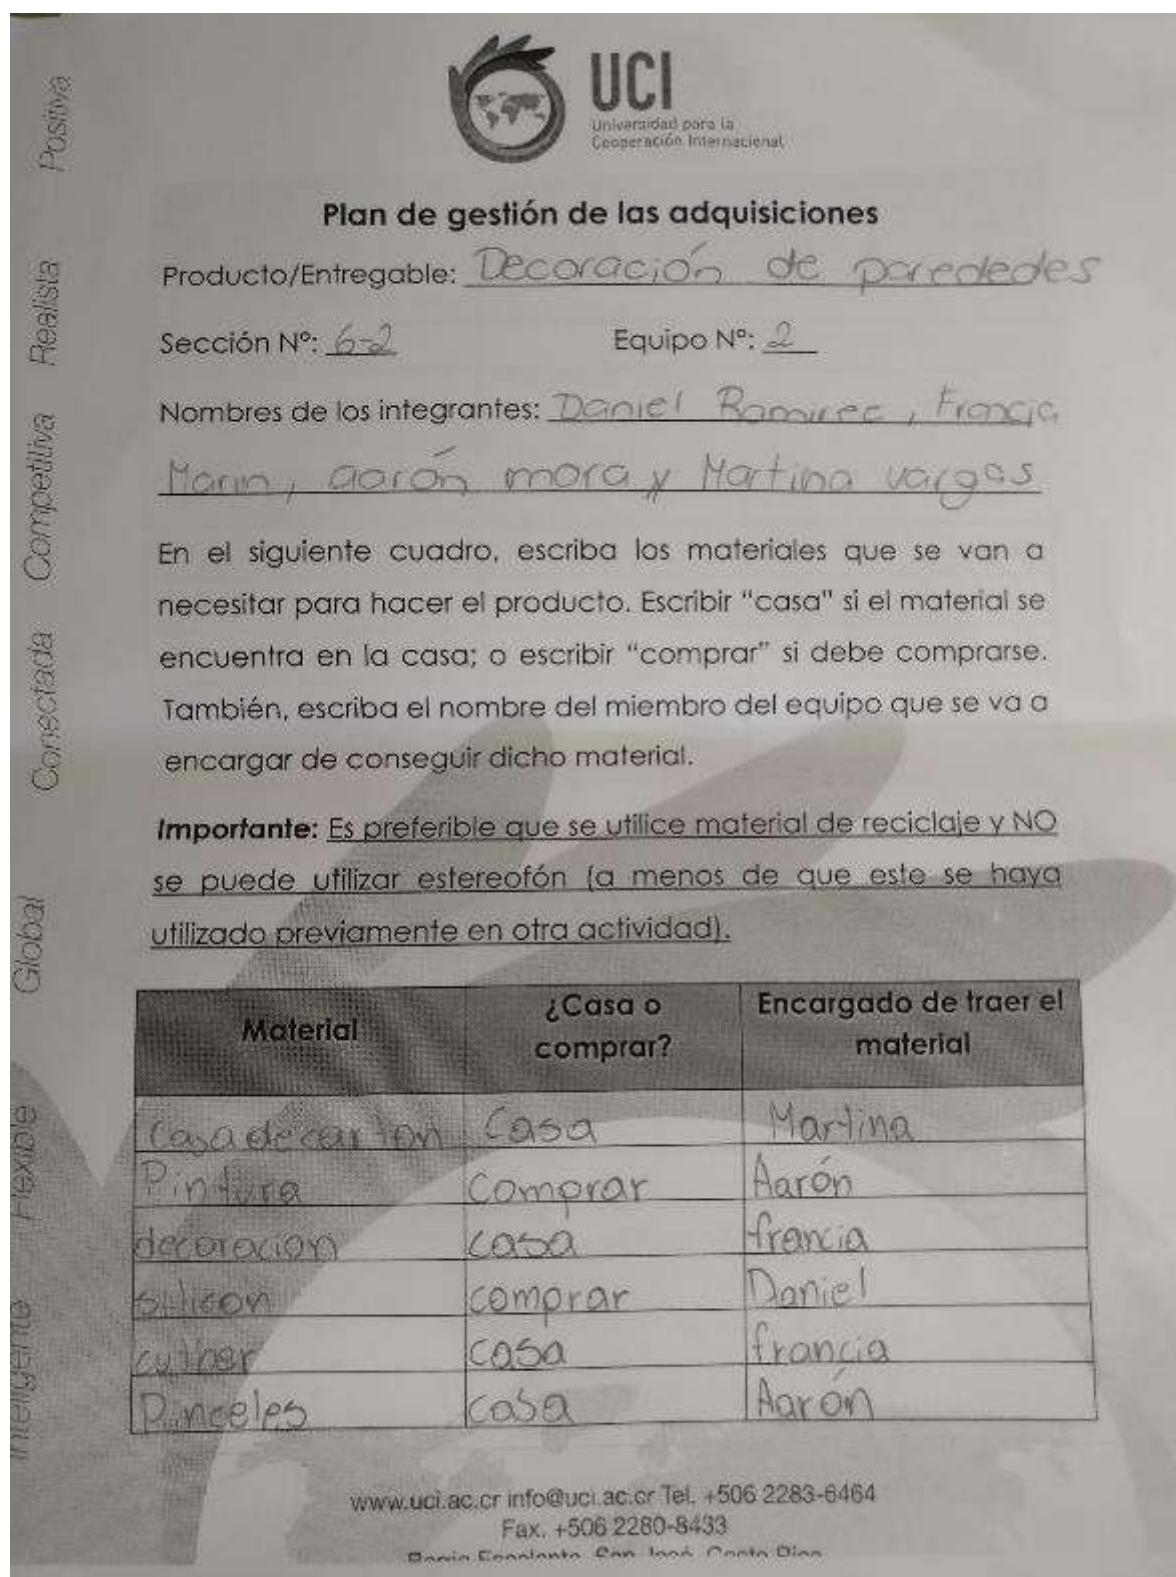 UCI
Universidad para la
Cooperación Internacional
Plan de gestión de las adquisiciones
Producto/Entregable: Decoración de parededes
Sección N°: 6-2 Equipo N°: 2
Nombres de los integrantes: Daniel Ramirec, Francia
Marin, aarón mora y Martina vargas
En el siguiente cuadro, escriba los materiales que se van a
necesitar para hacer el producto. Escribir “casa” si el material se
encuentra en la casa; o escribir “comprar” si debe comprarse.
También, escriba el nombre del miembro del equipo que se va a
encargar de conseguir dicho material.
Importante: Es preferible que se utilice material de reciclaje y NO
se puede utilizar estereofón (a menos de que este se haya
utilizado previamente en otra actividad).
Material ¿Casa o comprar? Encargado de traer el material
Casa de carton Casa Martina
Pintura comprar Aarón
decoracion casa francia
silicon comprar Daniel
cuther casa francia
Pinceles casa Aarón
www.uci.ac.cr info@uci.ac.cr Tel. +506 2283-6464
Fax. +506 2280-8433
Barrio Escalante, San José, Costa Rica
Positiva
Realista
Competitiva
Conectada
Global
Flexible
Inteligente